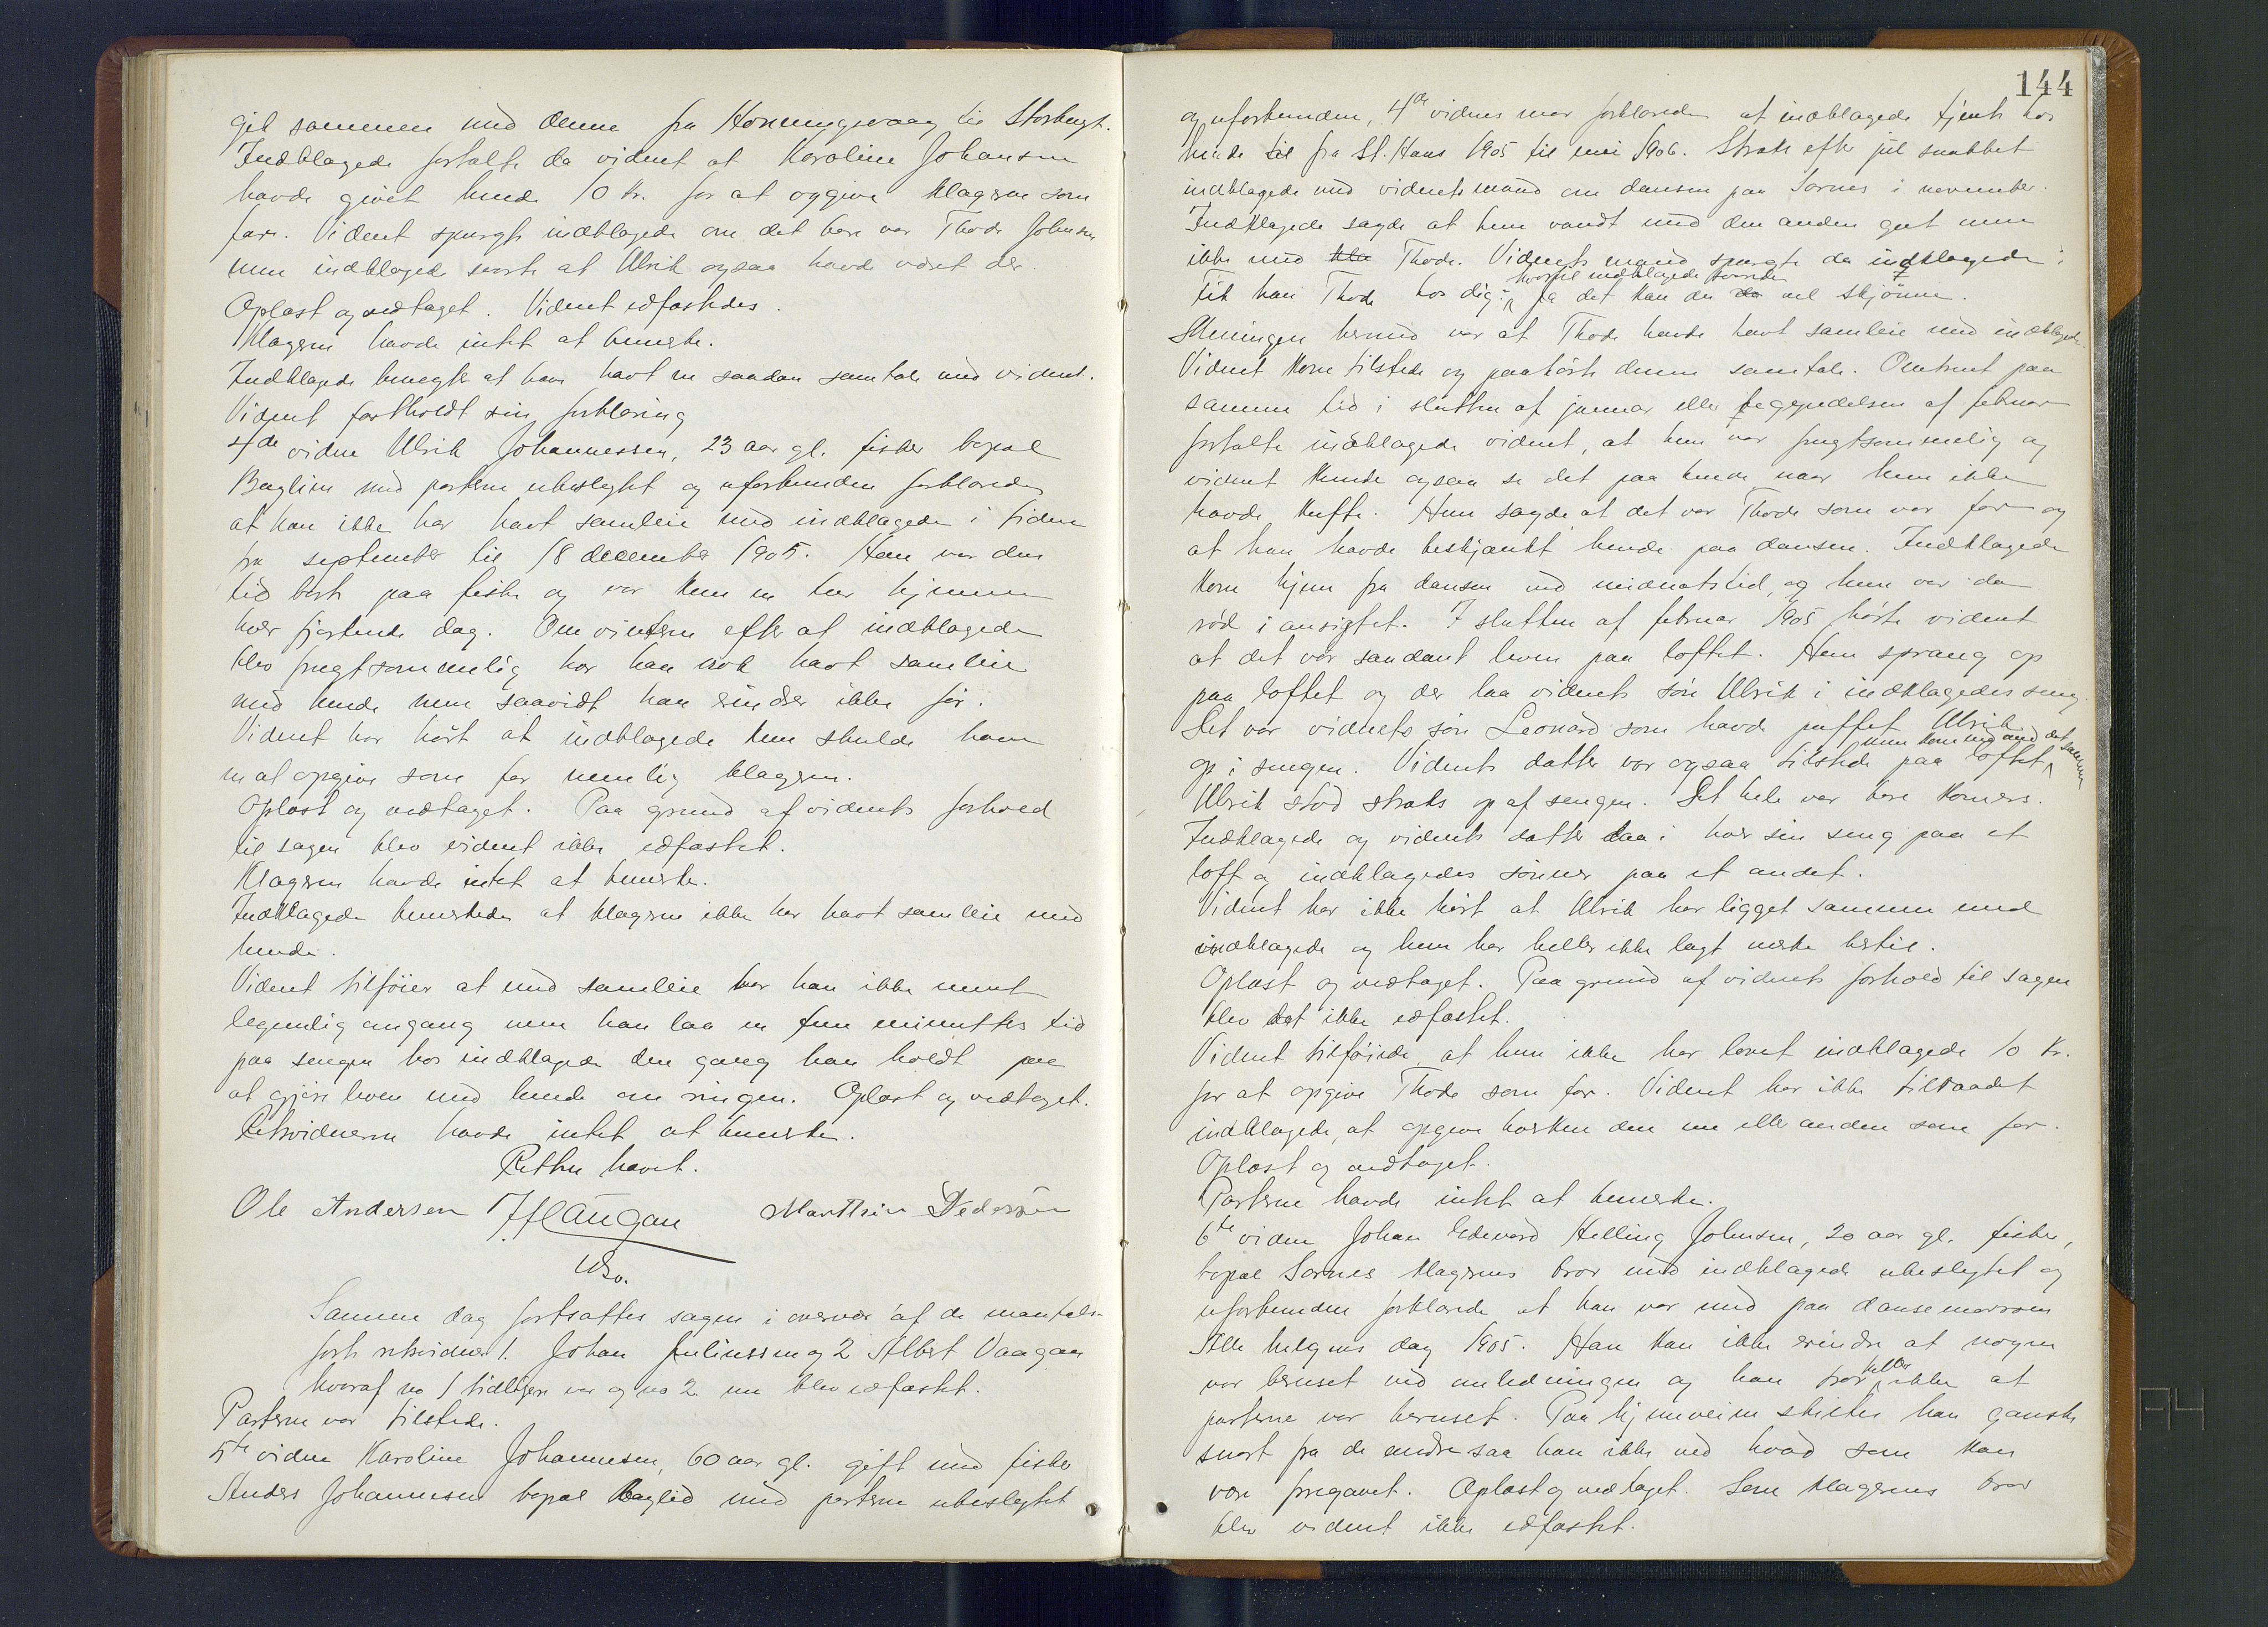 gik sammen med denne fra Honningsvaag til Storbugt.
Indklagede fortalte da vidnet at Karoline Johansen
havde givet hende 10 kr. for at opgive klageren som
far. Vidnet spurgte indklagede om det bare var Thode Johnsen
men indklagede svarte at Ulrik ogsaa havde været der.
Oplæst og vedtaget. Vidnet edfæstedes.
Klageren havde intet at bemerke.
Indklagede benegter at have havt en saadan samtale med vidnet.
Vidnet fastholdt sin forklaring
4de vidne Ulrik Johannessen, 23 aar gl. fisker bopæl
Baglien med parterne ubeslegtet og uforbunden forklarede
at han ikke har havt samleie med indklagede i tiden
fra september til 18 december 1905. Han var den
tid bort paa fiske og var kun en tur hjemme
hver fjortende dag. Om vinteren efter at indklagede
blev frugtsommelig har han nok havt samleie
med hende men saavidt han erindrer ikke før.
Vidnet har hørt at indklagede kun skulde have
en at opgive som far nemlig klageren.
Oplæst og vedtaget. Paa grund af vidnets forhold
til sagen blev vidnet ikke edfæstet.
Klageren havde intet at bemerke.
Indklagede bemerkede at klageren ikke har havt samleie med
hende.
Vidnet tilføier at med samleie har han ikke ment
legemlig omgang men han laa en fem minutters tid
paa sengen hos indklagede den gang han holdt paa
at gjøre leven med hende om ringen. Oplæst og vedtaget.
Retsvidnerne havde intet at bemerke.
Retten hævet.
Ole Andersen J. Haugan Marthin Pedersen
Samme dag fortsattes sagen i overvær af de mantals-
førte retsvidner 1. Johan Juliussen og 2 Albert Vaagan
hvoraf no 1 tidligere var og no 2. nu blev edfæstet.
Parterne var tilstede.
5te vidne Karoline Johannesen, 60 aar gl. gift med fisker
Anders Johannesen bopæl Baglid med parterne ubeslegtet
144
og uforbunden, 4de vidnes mor forklarede at indklagede tjente hos
hende til fra St. Hans 1905 til mai 1906. Straks efter jul snakket
indklagede med vidnets mand om dansen paa Sarnes i november.
Indklagede sagde at hun vandt med den anden gut men
ikke med Thode. Vidnets mand spurgte da indklagede:
hvortil indklagede svarede
Fik han Thode hos dig? Ja det kan du vel skjønne.
Meningen hermed var at Thode havde havt samleie med indklagede.
Vidnet kom tilstede og paahørte denne samtale. Omtrent paa
samme tid i slutten af januar eller begyndelsen af februar
fortalte indklagede vidnet, at hun var frugtsommelig og
vidnet kunde ogsaa se det paa hende naar hun ikke
havde kufte. Hun sagde at det var Thode som var far og
at han havde beskjænkt hende paa dansen. Indklagede
kom hjem fra dansen ved midnatstid, og hun var da
rød i ansigtet. I slutten af februar 1905 hørte vidnet
at det var saadant leven paa loftet. Hun sprang op
paa loftet og der laa vidnets søn Ulrik i indklagedes seng.
Det var vidnets søn Leonard som havde puffet Ulrik
men kom ned med det samme
op i sengen. Vidnets datter var ogsaa tilstede paa loftet
Ulrik stod straks op af sengen. Det hele var bare kommers.
Indklagede og vidnets datter laa i hver sin seng paa et
loft og indklagedes sønner paa et andet.
Vidnet har ikke hørt at Ulrik har ligget sammen med
indklagede og hun har heller ikke lagt merke hertil.
Oplæst og vedtaget. Paa grund af vidnets forhold til sagen
blev det ikke edfæstet.
Vidnet tilføiede at hun ikke har lovet indklagede 10 kr.
for at opgive Thode som far. Vidnet har ikke tilraadet
indklagede, at opgive hverken den ene eller anden som far.
Oplæst og vedtaget.
Parterne havde intet at bemerke.
6te vidne Johan Edevard Helling Johnsen, 20 aar gl. fisker,
bopæl Sarnes klagerens bror med indklagede ubeslegtet og
uforbunden forklarede at han var med paa dansemorroen
Alle helgens dag 1905. Han kan ikke erindre at nogen
heller
var beruset ved anledningen og han tror ikke at
parterne var beruset. Paa hjemveien skiltes han ganske
snart fra de andre saa han ikke ved hvad som kan
være foregaaet. Oplæst og vedtaget. Som klagerens bror
blev vidnet ikke edfæstet.